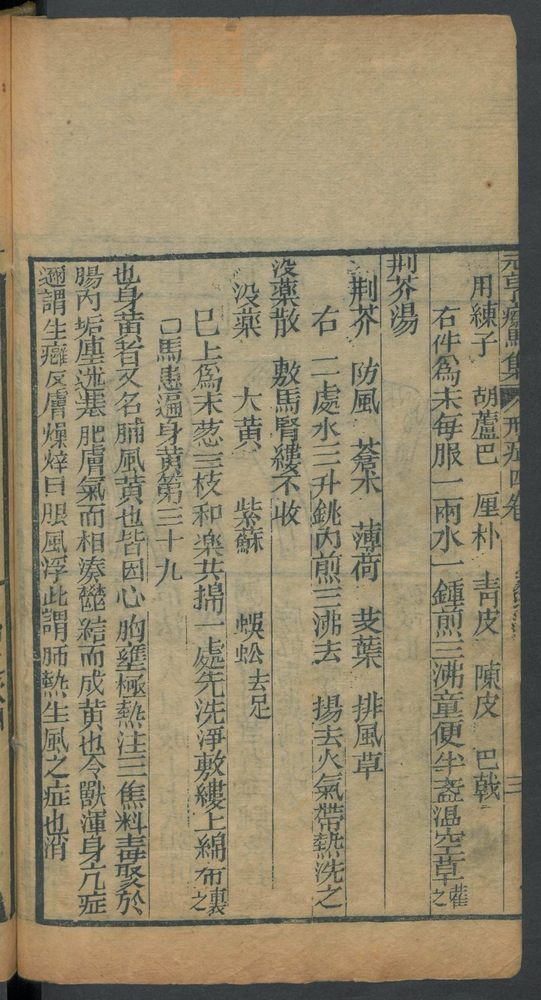 元亨療馬集 形症四卷 三
用練子 胡蘆巴 厘朴 青皮 陳皮 巴戟
右件為末每服一兩水一鍾煎三沸童便半盞溫空草灌之
荆芥湯
荆芥 防風 蒼朮 薄荷 茭葉 排風草
右 二處水三升銚內煎三沸去 揚去火氣帶熱洗之
没藥散 敷馬腎縷不收
没藥 大黄 紫蘇 蜈蚣去足
巳上為末葱三枝和藥共搗一處先洗淨敷縷上綿布裏之
口馬患遍身黄第三十九
也身黄者又名肺風黄也皆因心胸壅極熱注三焦料毒聚於
腸內垢塵迷塞肥膚氣而相湊鬱結而成黄也令獸渾身亢症
遍謂生癰皮膚燥痒曰脹風浮此謂肺熱生風之症也消